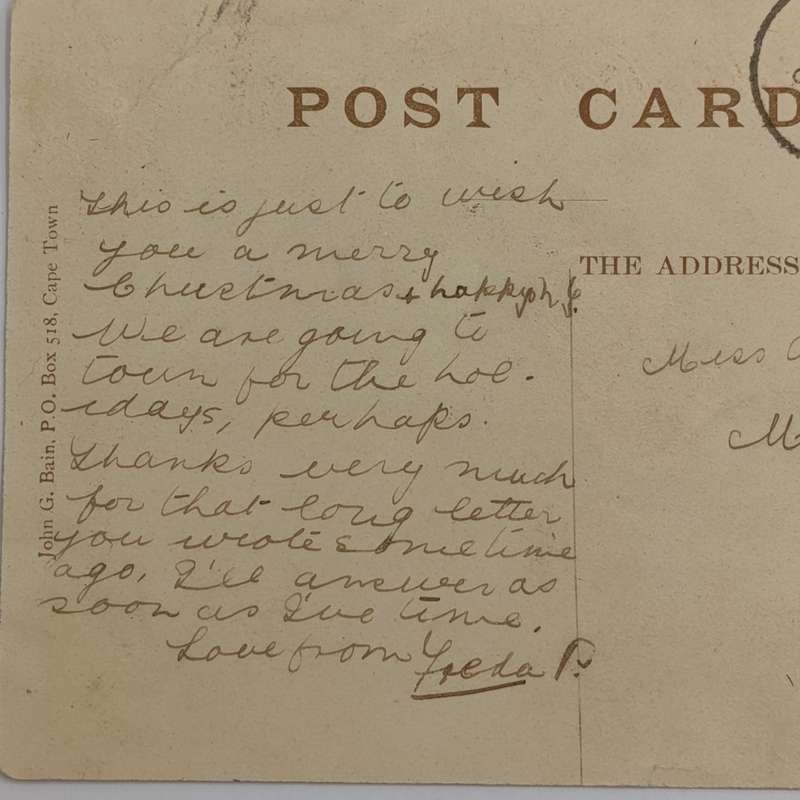 POST CARD
This is just to wish
you a merry
Christmas + happy N. Y.
We are going to
town for the hol-
idays, perhaps.
Thanks very much
for that long letter
you wrote sometime
ago. I'll answer as
soon as I've time.
Love from Freda P.
John G. Bain, P.O. Box 518, Cape Town
THE ADDRESS
Miss
M